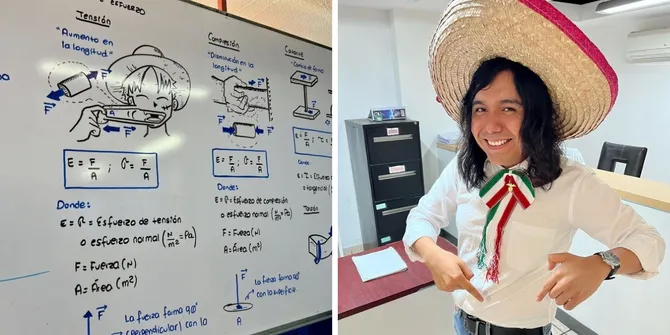 ESFUERZO
Tensión
"Aumento en
la longitud"
F
F
A
E = F/A ; σ = F/A
Donde:
E = σ = Esfuerzo de tensión
o esfuerzo normal (N/m² = Pa)
F = Fuerza (N)
A = Área (m²)
F
La fuerza forma 90°
(perpendicular) con la
A
Compresión
"Disminución en
la longitud"
F
F
F
E = F/A ; σ = F/A
Donde:
E = σ = Esfuerzo de compresión
o esfuerzo normal (N/m²)
F = Fuerza (N)
A = Área (m²)
F
La fuerza forma 90°
con la superficie.
A
Cortante
"Cambio de forma
F
Donde: